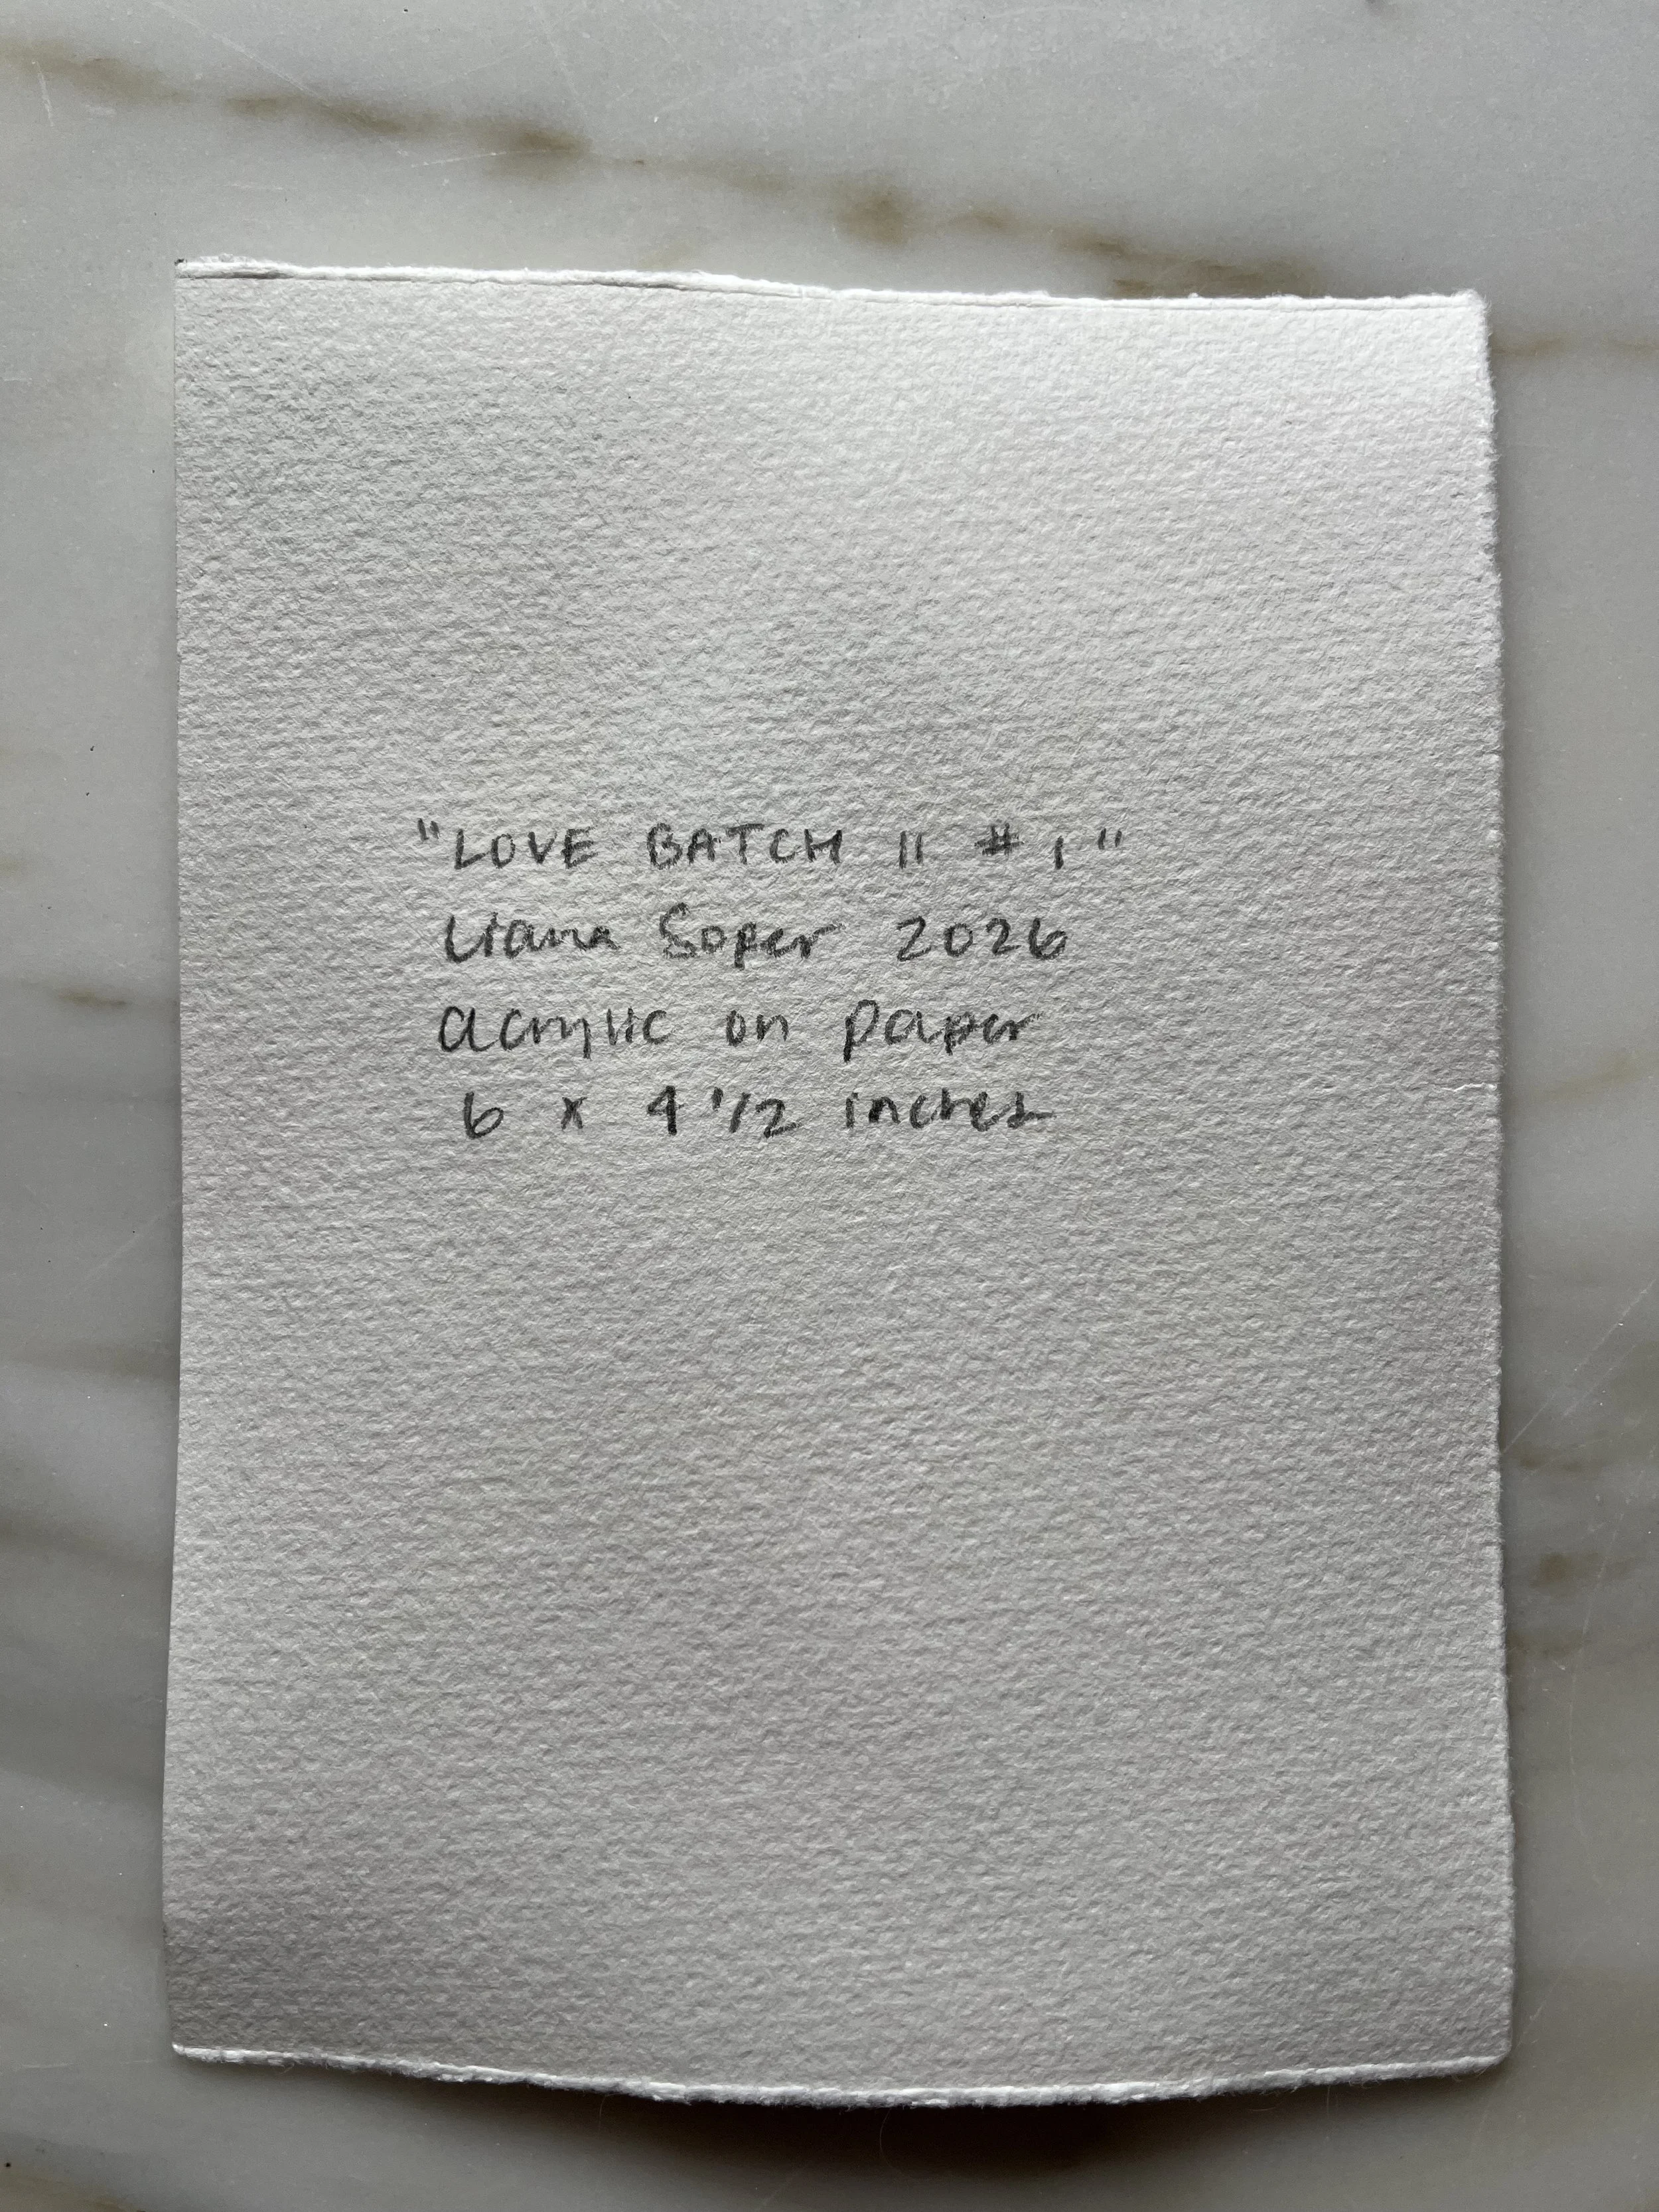 "LOVE BATCH II #1"
Liana Soper 2026
acrylic on paper
6 x 4 1/2 inches